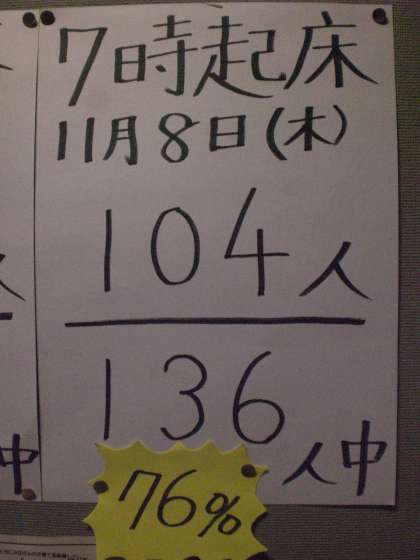 7時起床
11月8日(木)
104人
136人中
76%
中